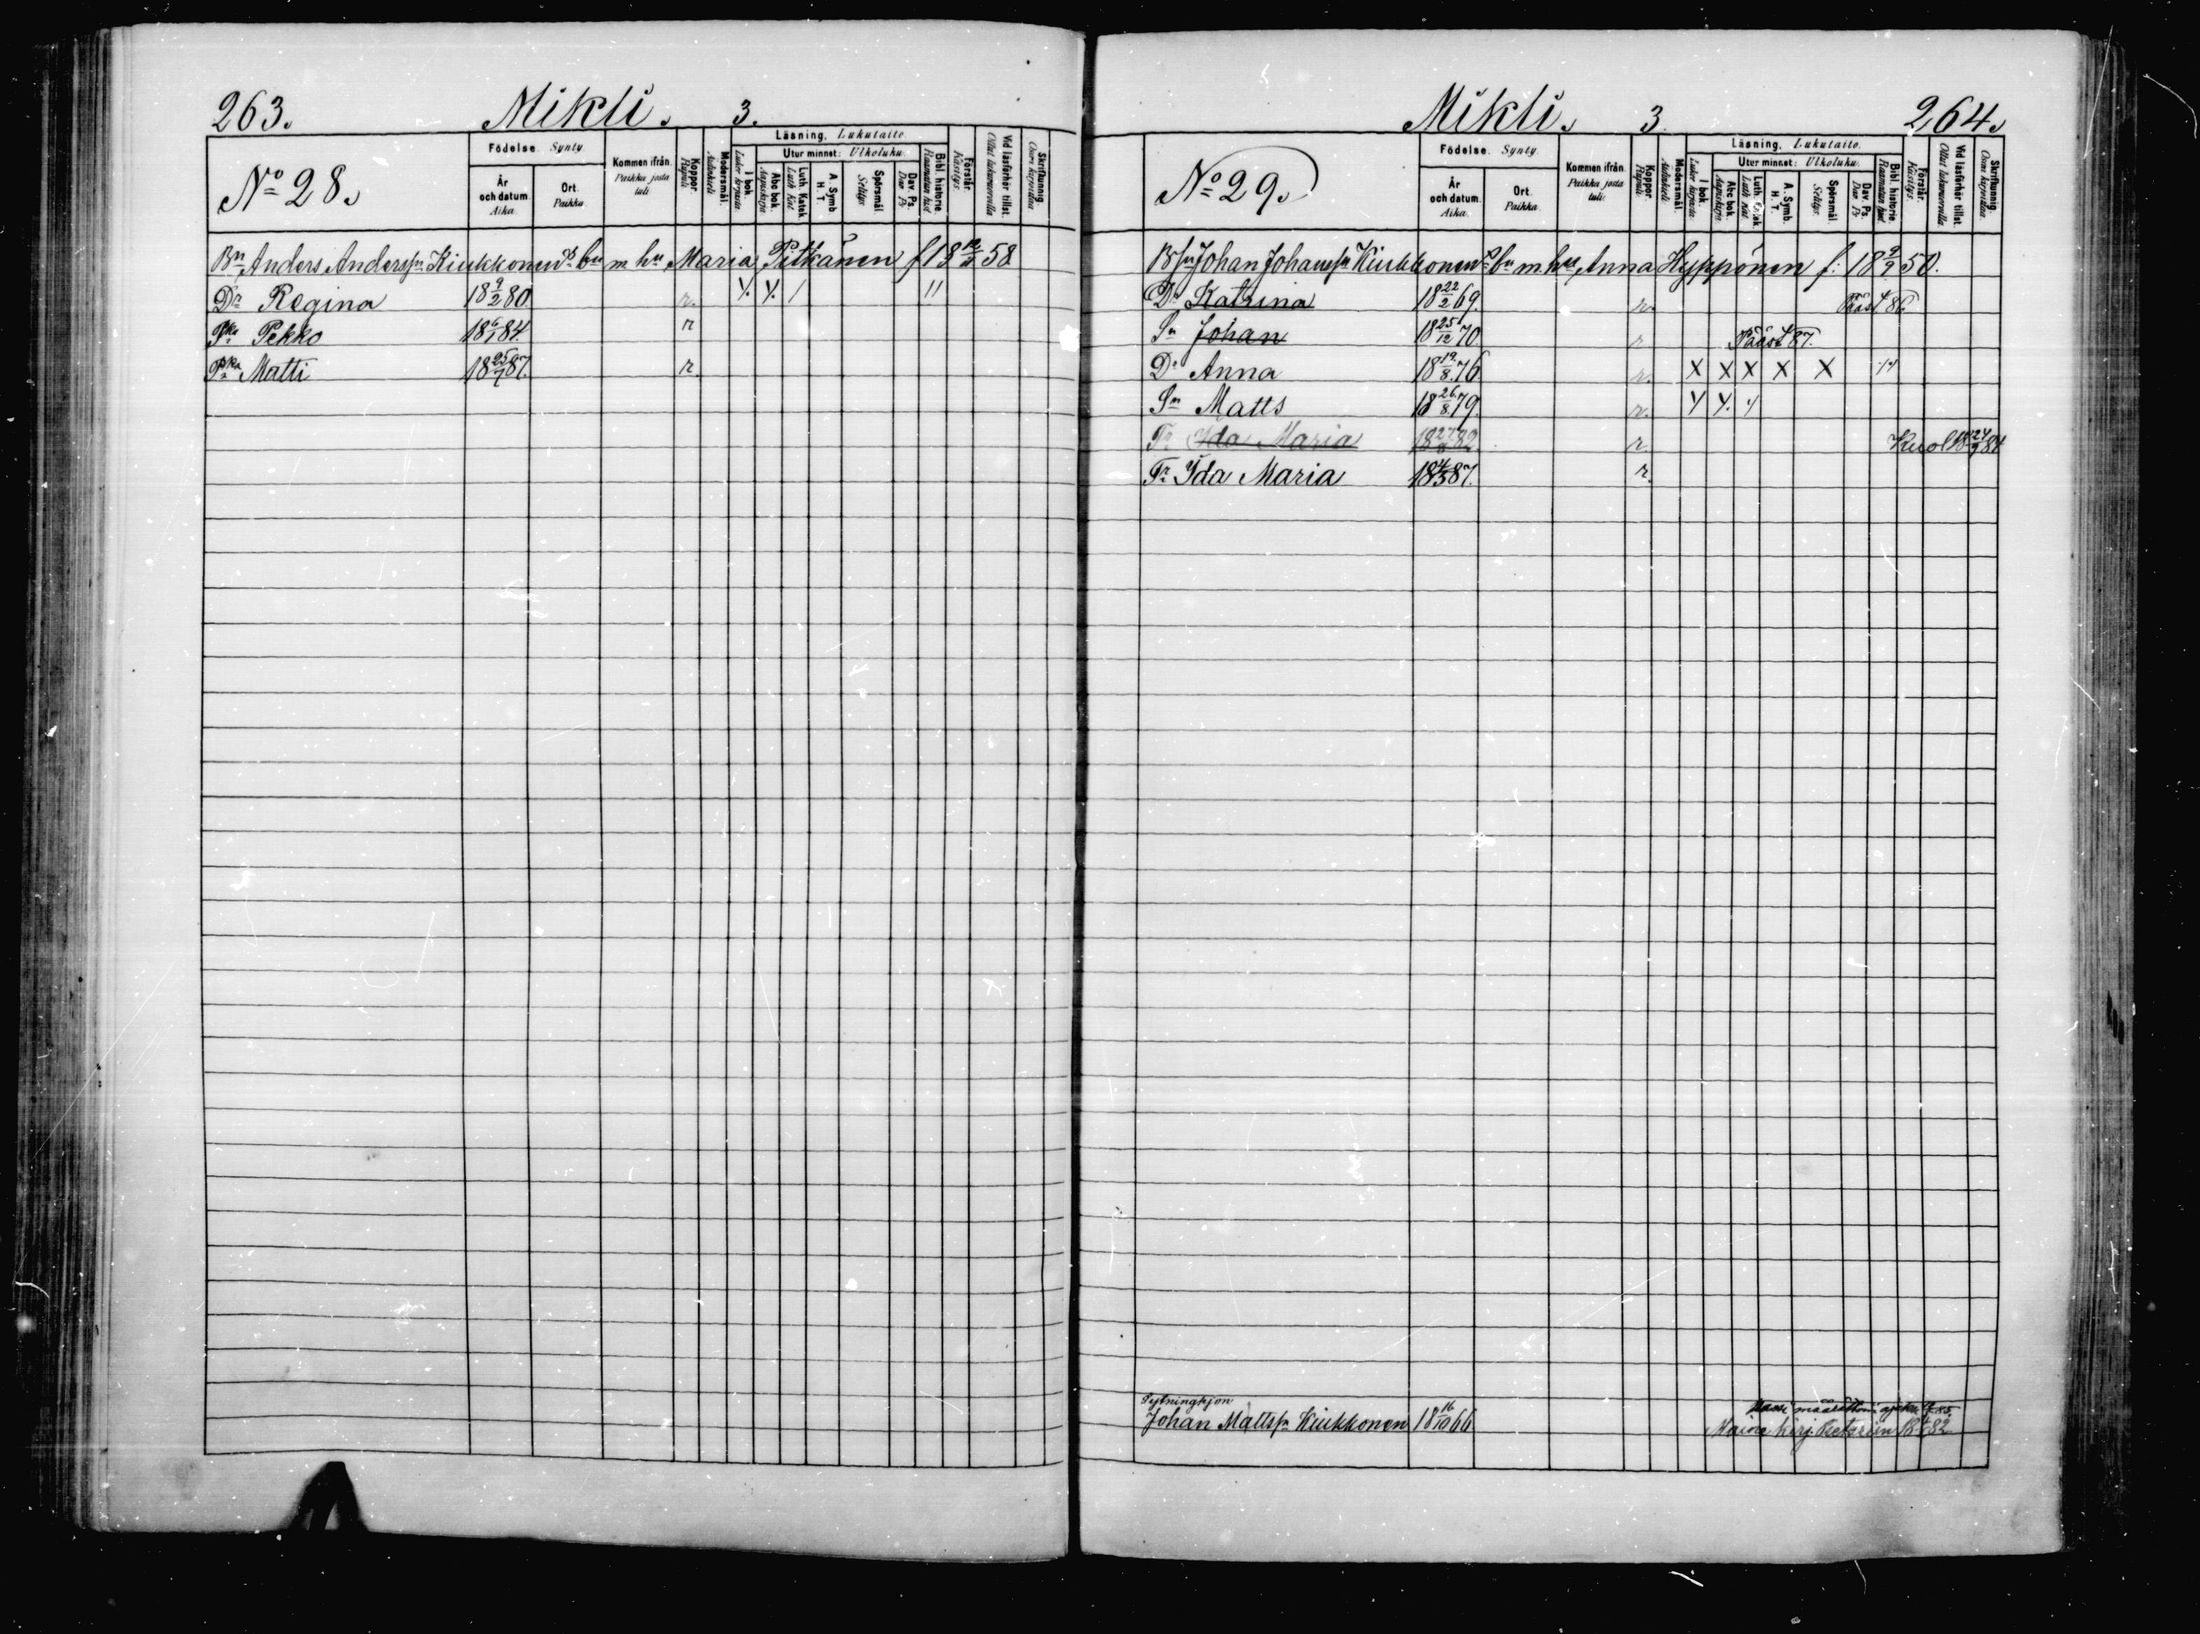 263. Mikli. 3.
No 28.
Födelse. Synty.
År och datum. Aika.
Ort. Paikka.
Kommen ifrån. Paikka josta tuli.
Koppor. Rupuli
Modersmål. Äidinkieli
Läsning. Lukutaito.
I bok. Lukee kirjasta.
Utur minnet: Ulkoluku.
Abc bok. Aapiskirja
Luth. Katek. Luth. Kat.
A. Symb. H. T.
Spörsmål. Selitys.
Dav. Ps. Dav. Ps.
Bibl. historie Raamatun hist.
Förstår. Käsitys.
Vid läsförhör tillst. Ollut lukuvuorolla
Skriftkunnig. Osaa kirjoittaa
Bn Anders Anderssn Kiukkonen bn m hu Maria Pitkänen f 18 58
Dr Regina 18 9/2 80. r. Y. Y. / 11
Pka Pekko 18 6/1 84. r
Pka Matti 18 25/7 87. r.
Mikli. 3. 264.
No 29.
Födelse. Synty.
År och datum. Aika.
Ort. Paikka.
Kommen ifrån. Paikka josta tuli.
Koppor. Rupuli
Modersmål. Äidinkieli
Läsning. Lukutaito.
I bok. Lukee kirjasta.
Utur minnet: Ulkoluku.
Abc bok. Aapiskirja
Luth. Katek. Luth. Kat.
A. Symb. H. T.
Spörsmål. Selitys.
Dav. Ps. Dav. Ps
Bibl. historie Raamatun hist
Förstår. Käsitys.
Vid läsförhör tillst. Ollut lukuvuorolla
Skriftkunnig. Osaa kirjoittaa
Johan Johanssn Kiukkonen bn m hu Anna Hyppönen f. 18 9/9 50.
Dr Katrina 18 22/2 69. r. Pääst 86
Sn Johan 18 25/12 70. r Pääst 87.
Dr Anna 18 19/8 76. r. X X X X X
Sn Matts 18 26/8 79. r. Y Y. Y
Tr Ida Maria 18 82. r. Kuol 18 84
Tr Ida Maria 18 4/3 87. r.
Johan Mattssn Kiukkonen 18 16/10 66
Kirj. Pietariin 82